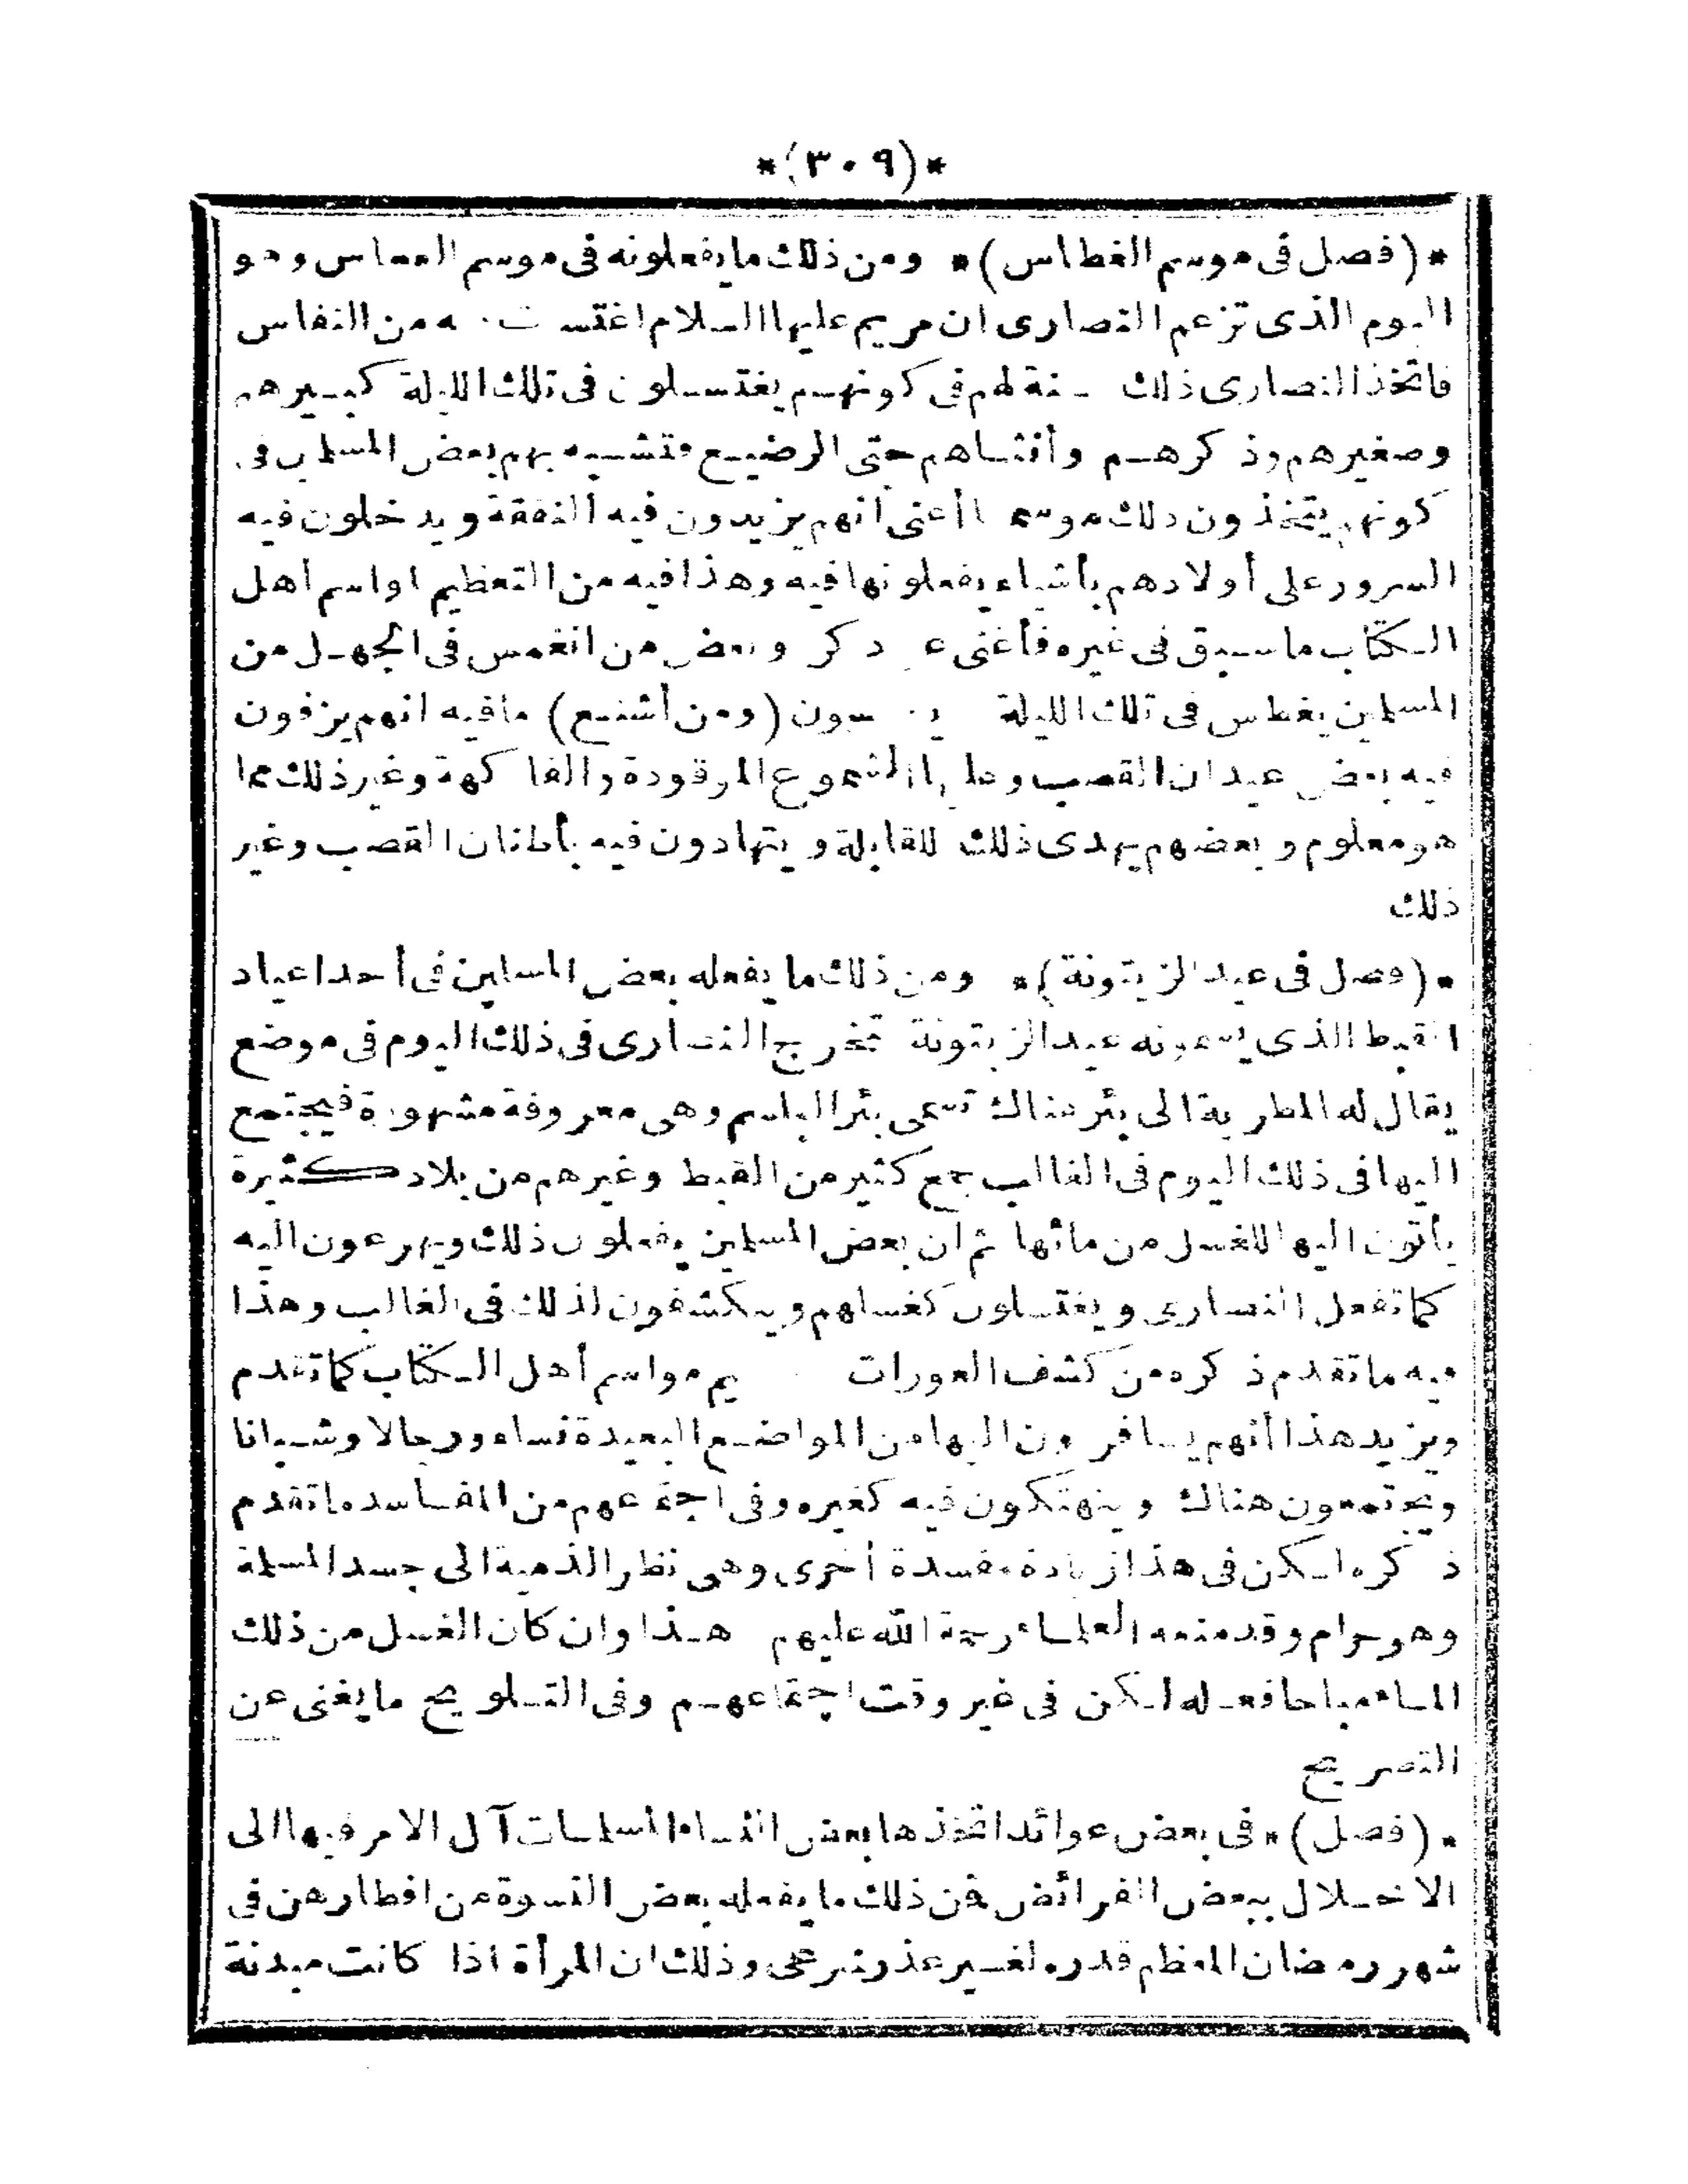 *(٣٠٩)*
*(فصل فى موسم الغطاس)* ومن ذلك ما يفعلونه فى موسم الغطاس وهو
اليوم الذى تزعم النصارى ان مريم عليها السلام اغتسلت فيه من النفاس
فاتخذ النصارى ذلك سنة لهم فى كونهم يغتسلون فى تلك الليلة كبيرهم
وصغيرهم وذكرهم وأنثاهم حتى الرضيع فتشبه بهم بعض المسلمين فى
كونهم يتخذون ذلك موسما أعنى أنهم يزيدون فيه النفقة ويدخلون فيه
السرور على أولادهم بأشياء يفعلونها فيه وهذا فيه من التعظيم لمواسم أهل
الكتاب ما سبق فى غيره فأغنى عن ذكره وبعض من انغمس فى الجهل من
المسلمين يغطس فى تلك الليلة (ومن أشنع) ما فيه انهم يزفون
فيه بعض عيدان القصب وعليها الشموع الموقودة والفاكهة وغير ذلك مما
هو معلوم وبعضهم يهدى ذلك للقابلة ويتهادون فيه بأطنان القصب وغير
ذلك
*(فصل فى عيد الزيتونة)* ومن ذلك ما يفعله بعض المسلمين فى أحد اعياد
القبط الذى يسمونه عيد الزيتونة تخرج النصارى فى ذلك اليوم فى موضع
يقال له المطرية الى بئر هناك تسمى بئر البلسم وهى معروفة مشهورة فيجتمع
اليها فى ذلك اليوم فى الغالب جمع كثير من القبط وغيرهم من بلاد كثيرة
يأتون اليها للغسل من مائها ثم ان بعض المسلمين يفعلون ذلك ويهرعون اليه
كما تفعل النصارى ويغتسلون كغسلهم وينكشفون لذلك فى الغالب وهذا
فيه ما تقدم ذكره من كشف العورات مواسم أهل الكتاب كما تقدم
ويزيد هذا أنهم يسافرون اليها من المواضع البعيدة نساء ورجالا وشبانا
ويجتمعون هناك وينهتكون فيه كغيره وفى اجتماعهم من المفاسد ما تقدم
ذكره لكن فى هذا زيادة مفسدة أخرى وهى نظر الذمية الى جسد المسلمة
وهو حرام وقد منعه العلماء رحمة الله عليهم هذا وان كان الغسل من ذلك
الماء مباحا فعله لكن فى غير وقت اجتماعهم وفى التلويح ما يغنى عن
التصريح
*(فصل)* فى بعض عوائد اتخذها بعض النساء المسلمات آل الامر فيها الى
الاخلال ببعض الفرائض فمن ذلك ما يفعله بعض النسوة من افطارهن فى
شهر رمضان المعظم قدره لغير عذر شرعى وذلك ان المرأة اذا كانت مبدنة